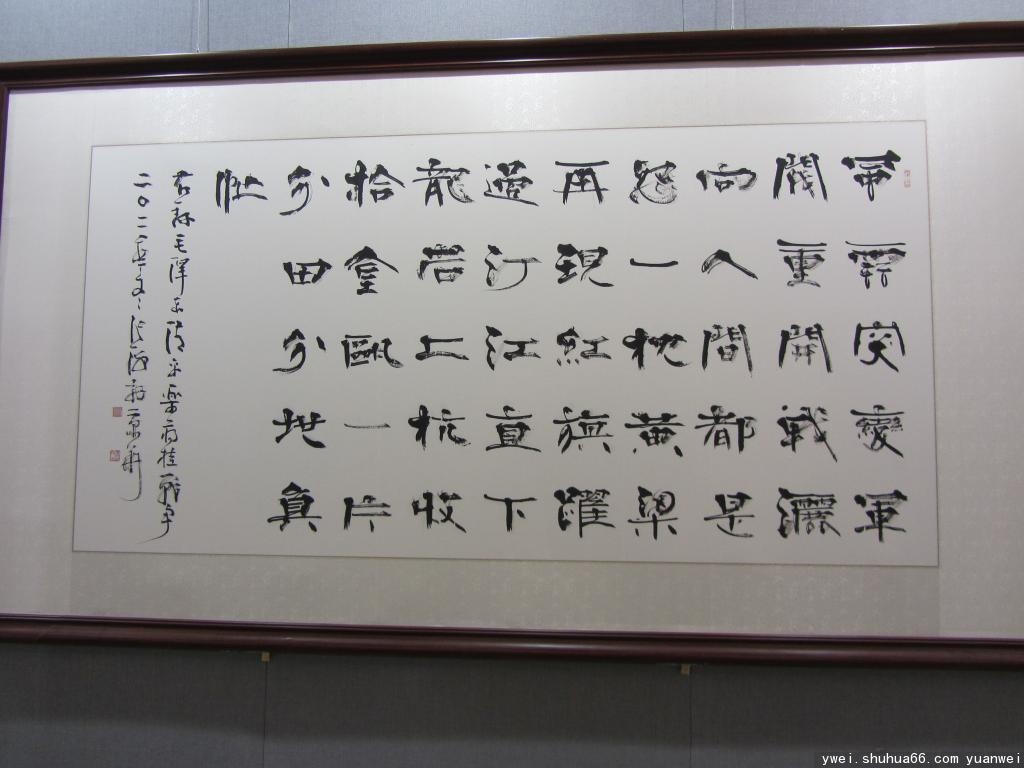 風雲突變軍
閥重開戰灑
向人間都是
怨一枕黃粱
再現紅旗躍
過汀江直下
龍岩上杭收
拾金甌一片
分田分地真
忙
右錄毛澤東清平樂蔣桂戰爭
二〇一一年
ywei.shuhua66.com yuanwei